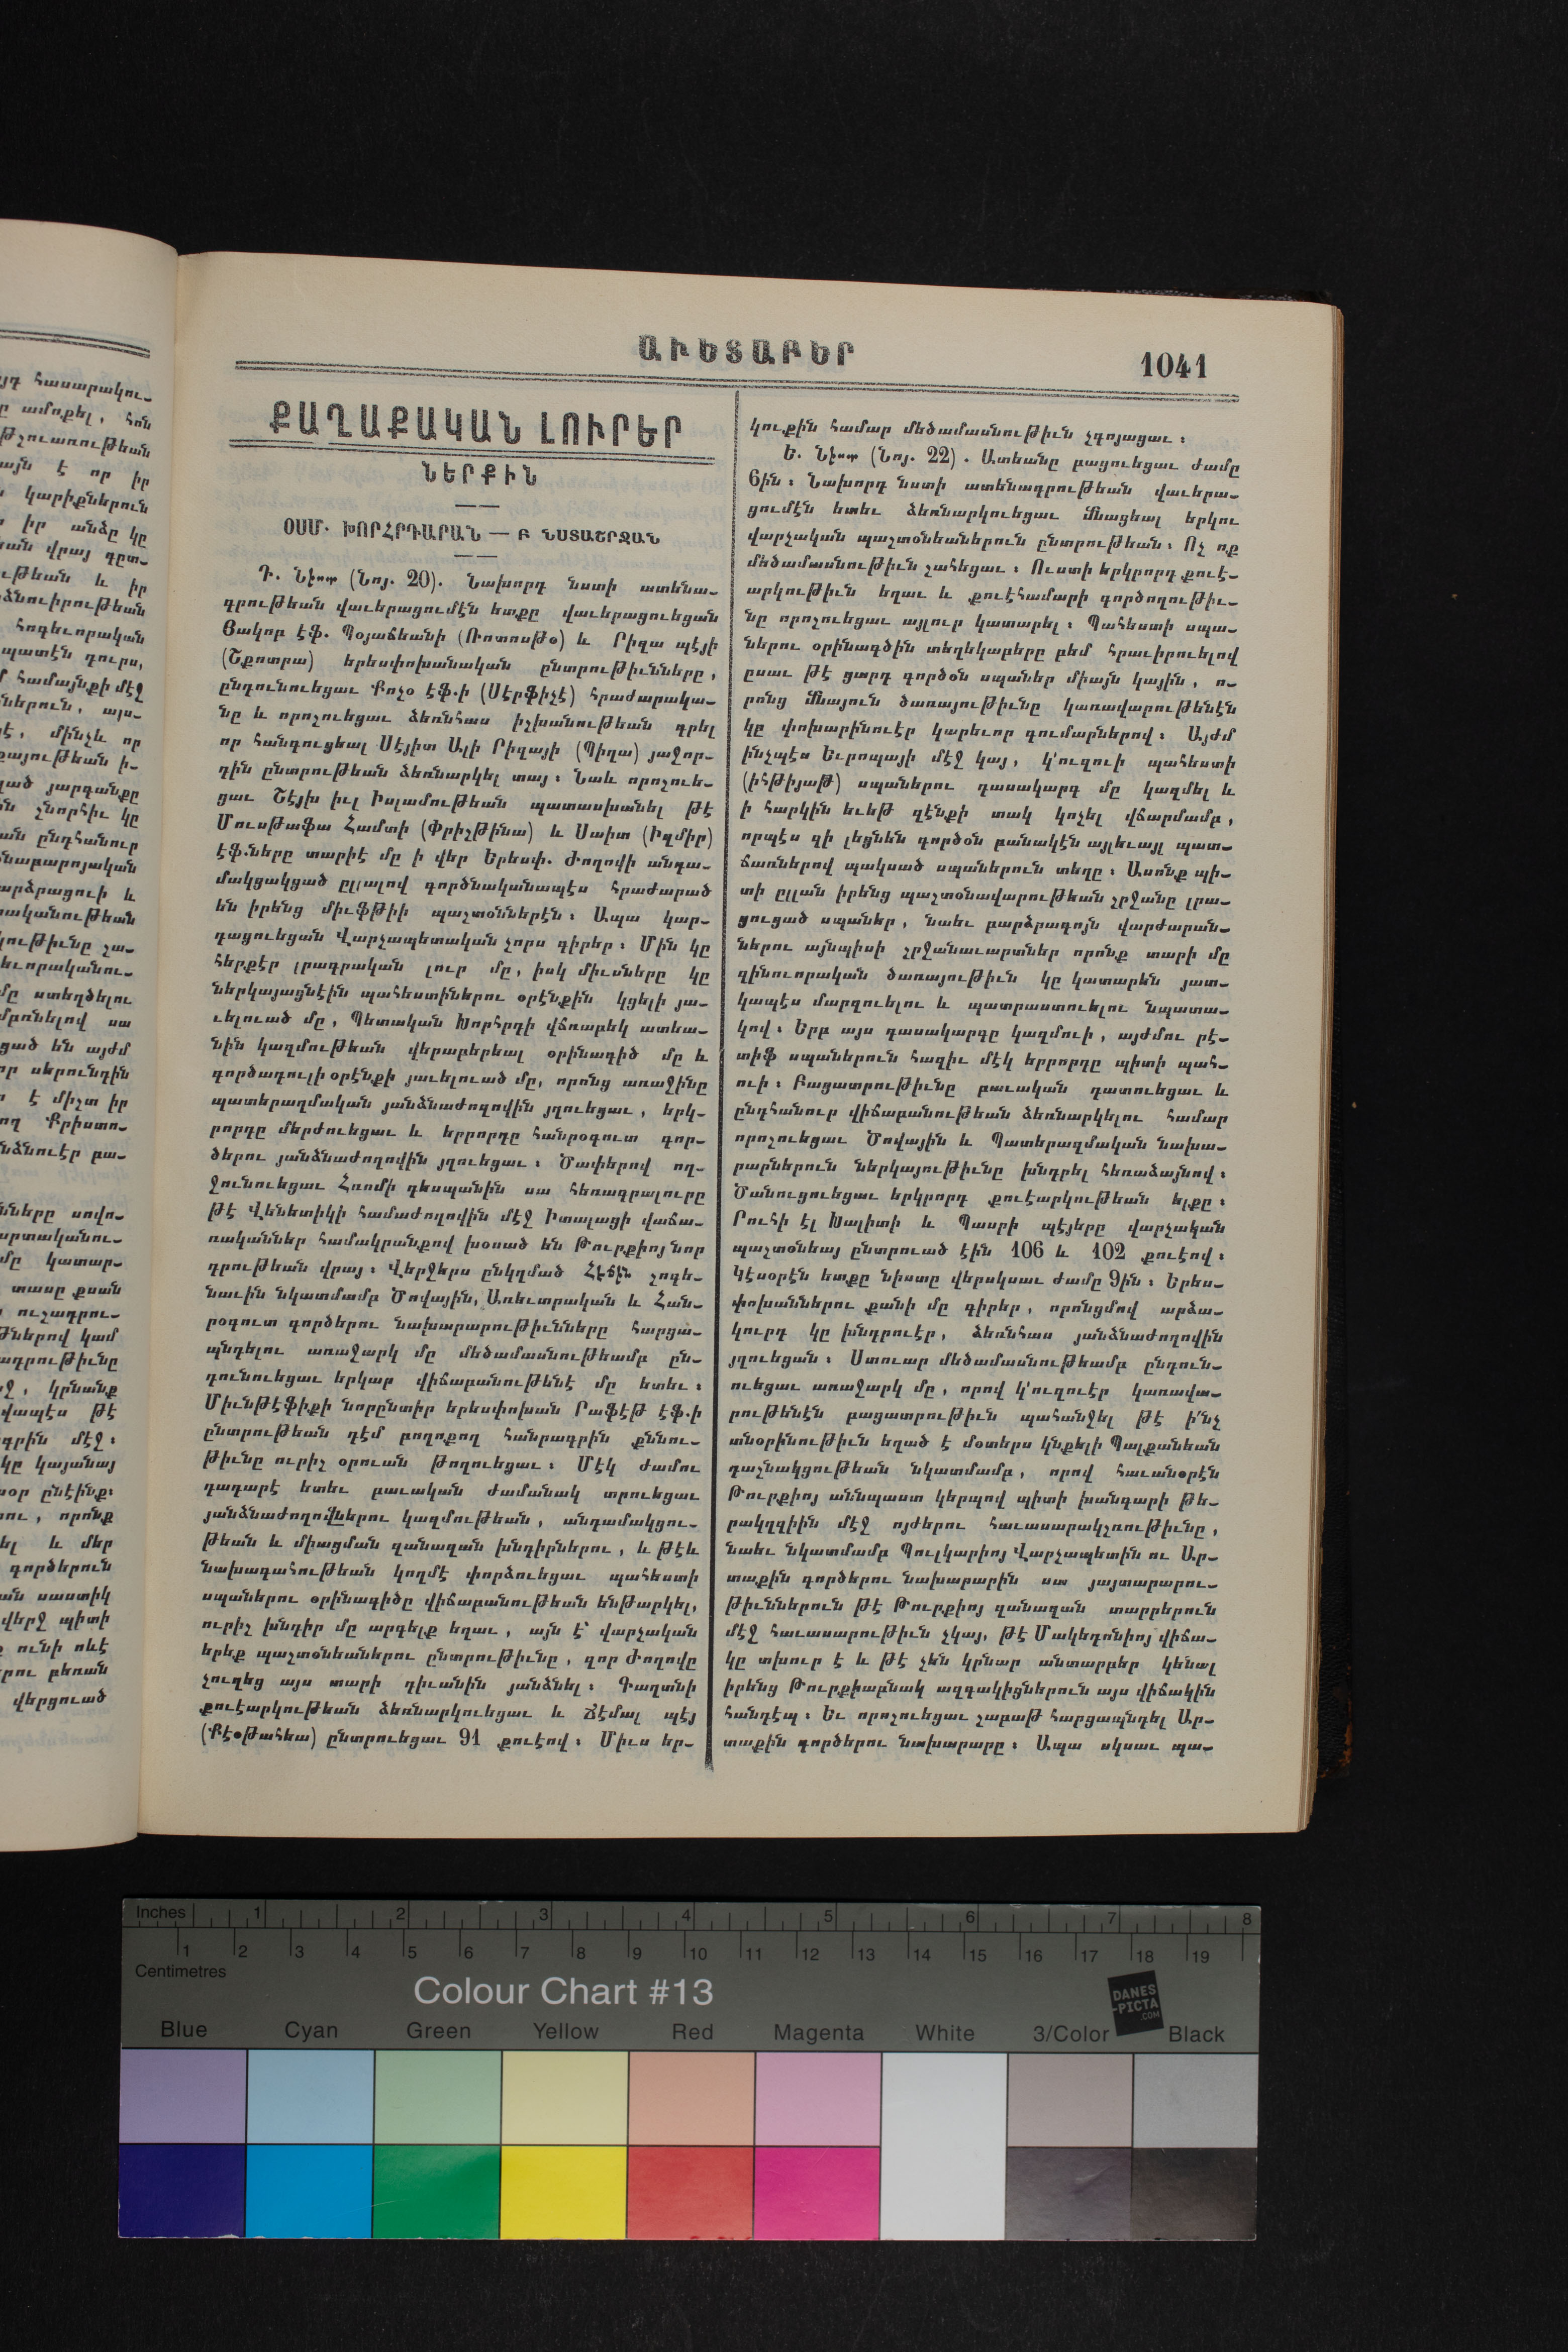 ԱՒԵՏԱԲԵՐ
1041
ՔԱՂԱՔԱԿԱՆ ԼՈՒՐԵՐ
ՆԵՐՔԻՆ
ՕՍՄ. ԽՈՐՀՐԴԱՐԱՆ — Բ ՆՍՏԱՇՐՋԱՆ
Դ. Նիստ (Նոյ. 20). Նախորդ նստի ատենա-
գրութեան վաւերացումէն ետքը վաւերացուեցան
Յակոբ էֆ. Պօյաճեանի (Ռոտոսթօ) և Րիզա պէյի
(Շքոտրա) երեսփոխանական ընտրութիւնները,
ընդունուեցաւ Քոչօ էֆ.ի (Սէրֆիչէ) հրաժարակա-
նը և որոշուեցաւ ձեռնհաս իշխանութեան գրել
որ հանգուցեալ Սէյիտ Ալի Րիզայի (Պիղա) յաջոր-
դին ընտրութեան ձեռնարկել տայ։ Նաև որոշուե-
ցաւ Շէյխ իւլ Իսլամութեան պատասխանել թէ
Մուսթաֆա Համտի (Փրիշթինա) և Սաիտ (Իզմիր)
էֆ.ները տարիէ մը ի վեր Երեսփ. Ժողովի անդա-
մակցակցած ըլլալով գործնականապէս հրաժարած
են իրենց միւֆթիի պաշտօններէն։ Ապա կար-
դացուեցան Վարչապետական չորս գիրեր։ Մին կը
հերքէր լրագրական լուր մը, իսկ միւսները կը
ներկայացնէին պահեստիներու օրէնքին կցելի յա-
ւելուած մը, Պետական Խորհրդի վճռաբեկ ատեա-
նին կազմութեան վերաբերեալ օրինագիծ մը և
գործադուլի օրէնքի յաւելուած մը, որոնց առաջինը
պատերազմական յանձնաժողովին յղուեցաւ, երկ-
րորդը մերժուեցաւ և երրորդը հանրօգուտ գոր-
ծերու յանձնաժողովին յղուեցաւ։ Ծափերով ող-
ջունուեցաւ Հռոմի դեսպանին սա հեռագրալուրը
թէ Վենետիկի համաժողովին մէջ Իտալացի վաճա-
ռականներ համակրանքով խօսած են Թուրքիոյ նոր
դրութեան վրայ։ Վերջերս ընկղմած Հէճին շոգե-
նաւին նկատմամբ Ծովային, Առեւտրական և Հան-
րօգուտ գործերու նախարարութիւնները հարցա-
պնդելու առաջարկ մը մեծամասնութեամբ ըն-
դունուեցաւ երկար վիճաբանութենէ մը ետեւ։
Միւնթէֆիքի նորընտիր երեսփոխան Րաֆէթ էֆ.ի
ընտրութեան դէմ բողոքող հանրագրին քննու-
թիւնը ուրիշ օրուան թողուեցաւ։ Մէկ ժամու
դադարէ ետեւ բաւական ժամանակ տրուեցաւ
յանձնաժողովներու կազմութեան, անդամակցու-
թեան և միացման զանազան խնդիրներու, և թէև
նախագահութեան կողմէ փորձուեցաւ պահեստի
սպաներու օրինագիծը վիճաբանութեան ենթարկել,
ուրիշ խնդիր մը արգելք եղաւ, այն է՝ վարչական
երեք պաշտօնեաներու ընտրութիւնը, զոր Ժողովը
չուզեց այս տարի դիւանին յանձնել։ Գաղտնի
քուէարկութեան ձեռնարկուեցաւ և Ճէմալ պէյ
(Քէօթահեա) ընտրուեցաւ 91 քուէով։ Միւս եր-
կուքին համար մեծամասնութիւն չգոյացաւ։
Ե. Նիստ (Նոյ. 22). Ատեանը բացուեցաւ ժամը
6ին։ Նախորդ նստի ատենագրութեան վաւերա-
ցումէն ետեւ ձեռնարկուեցաւ մնացեալ երկու
վարչական պաշտօնեաներուն ընտրութեան։ Ոչ ոք
մեծամասնութիւն շահեցաւ։ Ուստի երկրորդ քուէ-
արկութիւն եղաւ և քուէհամարի գործողութիւ-
նը որոշուեցաւ այլուր կատարել։ Պահեստի սպա-
ներու օրինագծին տեղեկաբերը բեմ հրաւիրուելով
ըսաւ թէ ցարդ գործօն սպաներ միայն կային, ո-
րոնց մնայուն ծառայութիւնը կառավարութենէն
կը փոխարինուէր կարեւոր գումարներով։ Այժմ
ինչպէս Եւրոպայի մէջ կայ, կ՚ուզուի պահեստի
(իհթիյաթ) սպաներու դասակարգ մը կազմել և
ի հարկին եւեթ զէնքի տակ կոչել վճարմամբ,
որպէս զի լեցնեն գործօն բանակէն այլեւայլ պատ-
ճառներով պակսած սպաներուն տեղը։ Ասոնք պի-
տի ըլլան իրենց պաշտօնավարութեան շրջանը լրա-
ցուցած սպաներ, նաեւ բարձրագոյն վարժարան-
ներու այնպիսի շրջանաւարտներ որոնք տարի մը
զինուորական ծառայութիւն կը կատարեն յատ-
կապէս մարզուելու և պատրաստուելու նպատա-
կով։ Երբ այս դասակարգը կազմուի, այժմու րէ-
տիֆ սպաներուն հազիւ մէկ երրորդը պիտի պահ-
ուի։ Բացատրութիւնը բաւական դատուեցաւ և
ընդհանուր վիճաբանութեան ձեռնարկելու համար
որոշուեցաւ Ծովային և Պատերազմական նախա-
րարներուն ներկայութիւնը խնդրել հեռաձայնով։
Ծանուցուեցաւ երկրորդ քուէարկութեան ելքը։
Րուհի էլ Խալիտի և Պասրի պէյերը վարչական
պաշտօնեայ ընտրուած էին 106 և 102 քուէով։
Կէսօրէն ետքը նիստը վերսկսաւ ժամը 9ին։ Երես-
փոխաններու քանի մը գիրեր, որոնցմով արձա-
կուրդ կը խնդրուէր, ձեռնհաս յանձնաժողովին
յղուեցան։ Ստուար մեծամասնութեամբ ընդուն-
ուեցաւ առաջարկ մը, որով կ՚ուզուէր կառավա-
րութենէն բացատրութիւն պահանջել թէ ի՛նչ
տնօրինութիւն եղած է մօտերս կնքելի Պալքանեան
դաշնակցութեան նկատմամբ, որով հաւանօրէն
Թուրքիոյ աննպաստ կերպով պիտի խանգարի թե-
րակղզիին մէջ ոյժերու հաւասարակշռութիւնը,
նաեւ նկատմամբ Պուլկարիոյ Վարչապետին ու Ար-
տաքին գործերու նախարարին սա յայտարարու-
թիւններուն թէ Թուրքիոյ զանազան տարրերուն
մէջ հաւասարութիւն չկայ, թէ Մակեդոնիոյ վիճա-
կը տխուր է և թէ չեն կրնար անտարբեր կենալ
իրենց Թուրքիաբնակ ազգակիցներուն այս վիճակին
հանդէպ։ Եւ որոշուեցաւ շաբաթ հարցապնդել Ար-
տաքին գործերու նախարարը։ Ապա սկսաւ պա-
Inches 1 2 3 4 5 6 7 8
1 2 3 4 5 6 7 8 9 10 11 12 13 14 15 16 17 18 19
Centimetres
Colour Chart #13
DANES
-PICTA
.COM
Blue Cyan Green Yellow Red Magenta White 3/Color Black